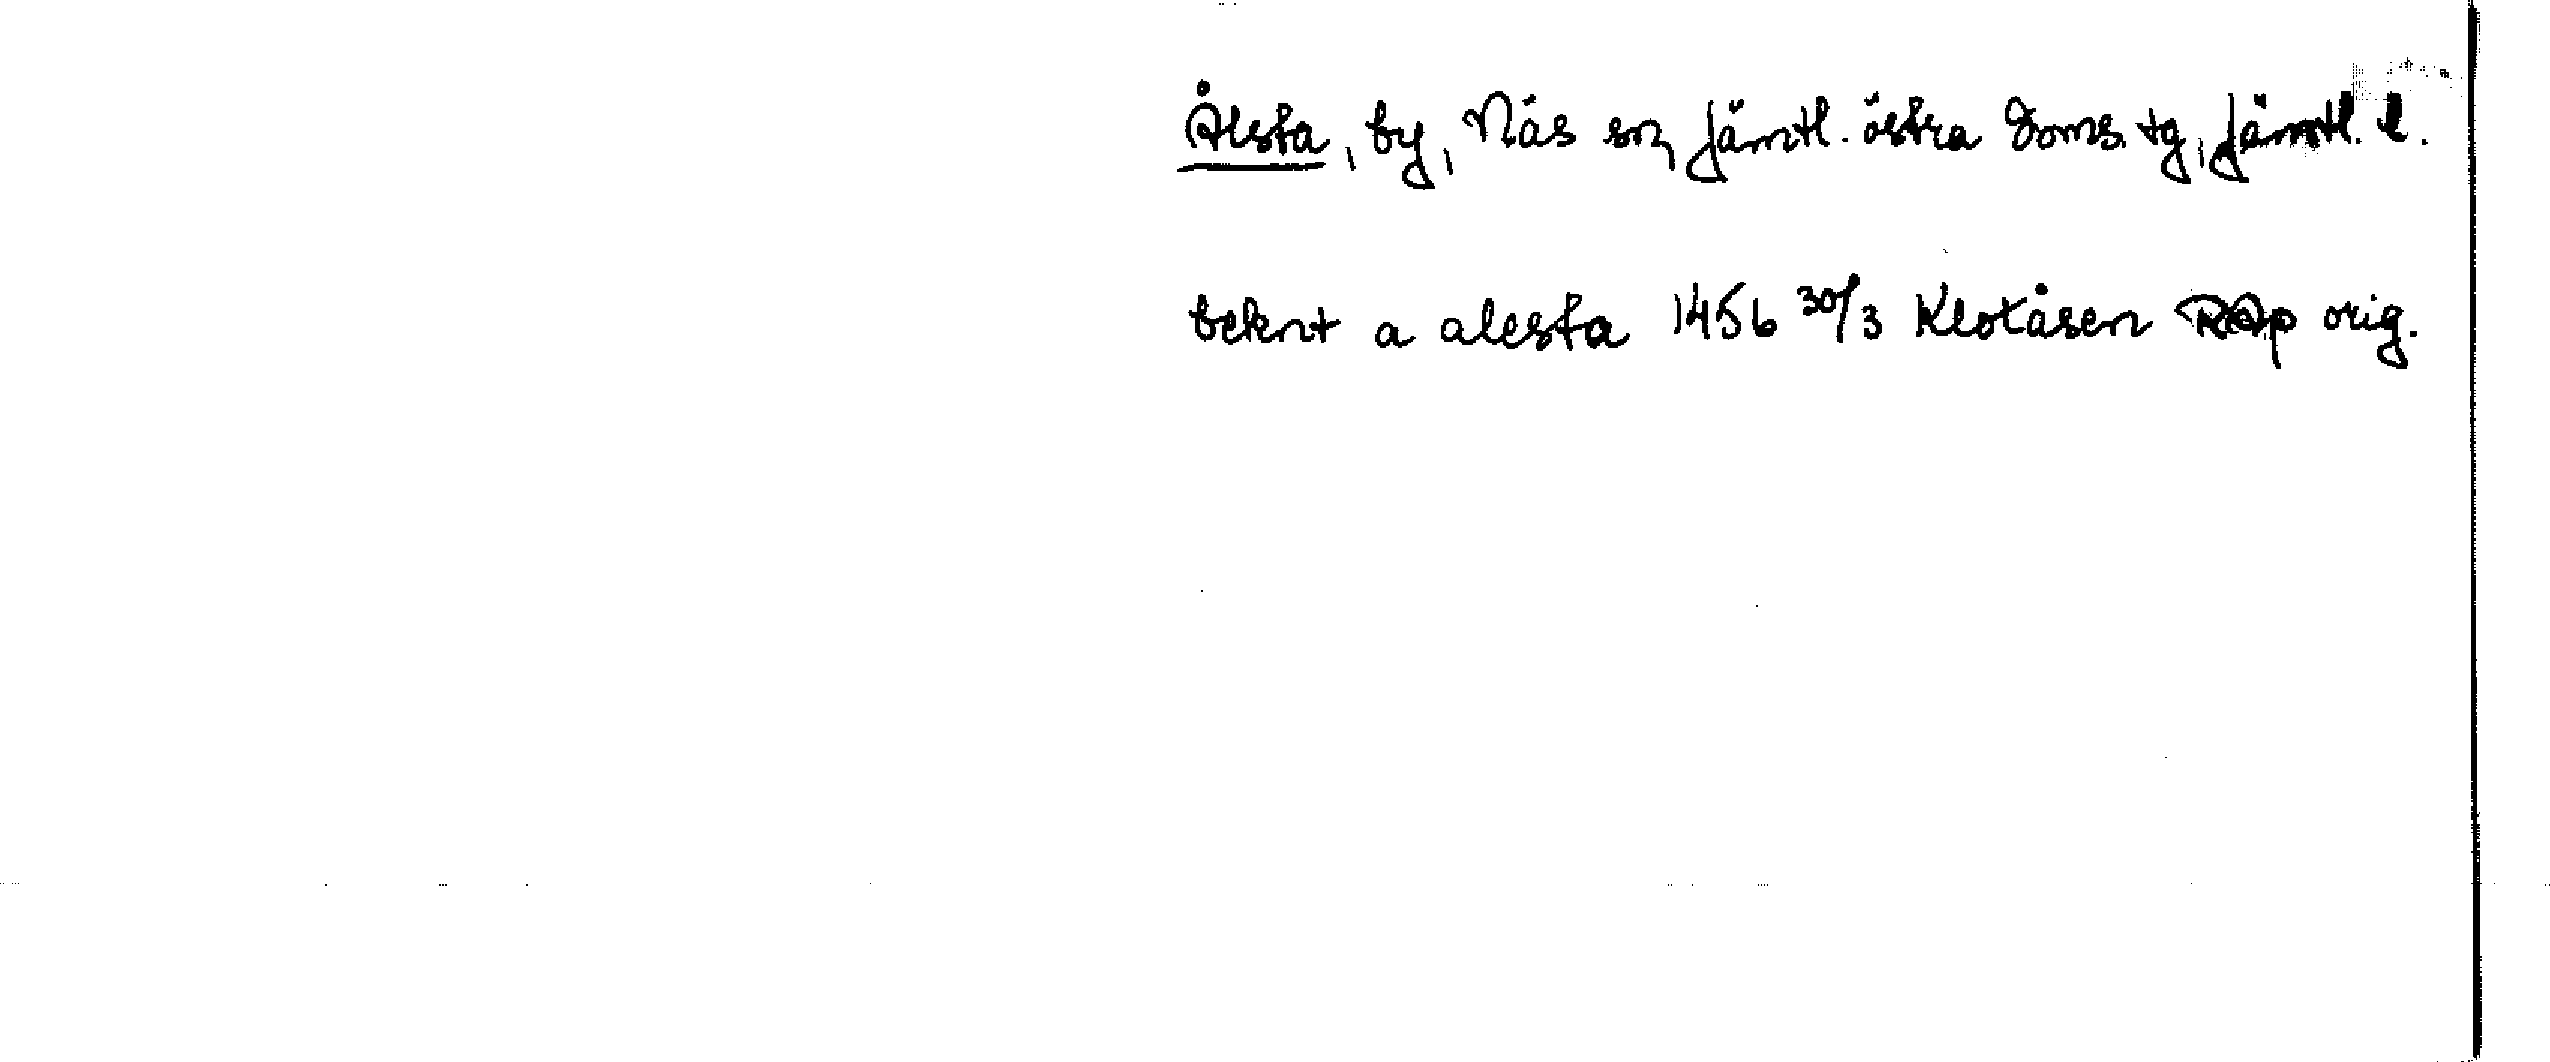 Ålsta, by, Näs sn, Jämtl. östra doms. tg, Jämtl. l.
beknt a alesta 1456 30/3 Klotåsen RAp orig.